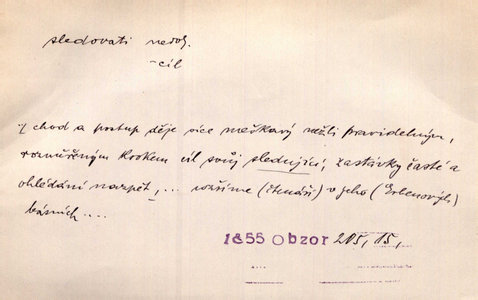 sledovati nedok.
-cíl
chod a postup děje více meškavý nežli pravidelným,
rozměřeným krokem cíl svůj sledující, zastávky časté a
ohlédání nazpět, ... (čtenáři) v jeho (Erbenových)
básních ....
1855 Obzor 215, 15,